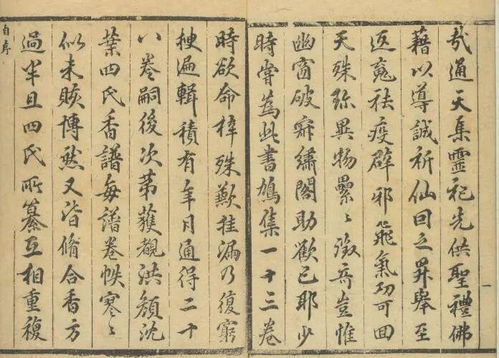 哉通天集靈祀先供聖禮佛
藉以導誠祈仙因之昇舉至
返䰟祛疫辟邪飛氣功可回
天殊珍異物纍〻徵奇豈惟
幽窗破寂繡閣助歡已耶少
時嘗爲此書鳩集一十三卷
時欲命梓殊歉挂漏乃復窮
搜遍輯積有年月通得二十
八卷嗣後次第獲覩洪顏沈
葉四氏香譜每譜卷帙寥〻
似未賅博然又皆脩合香方
過半且四氏所纂互相重複
自序